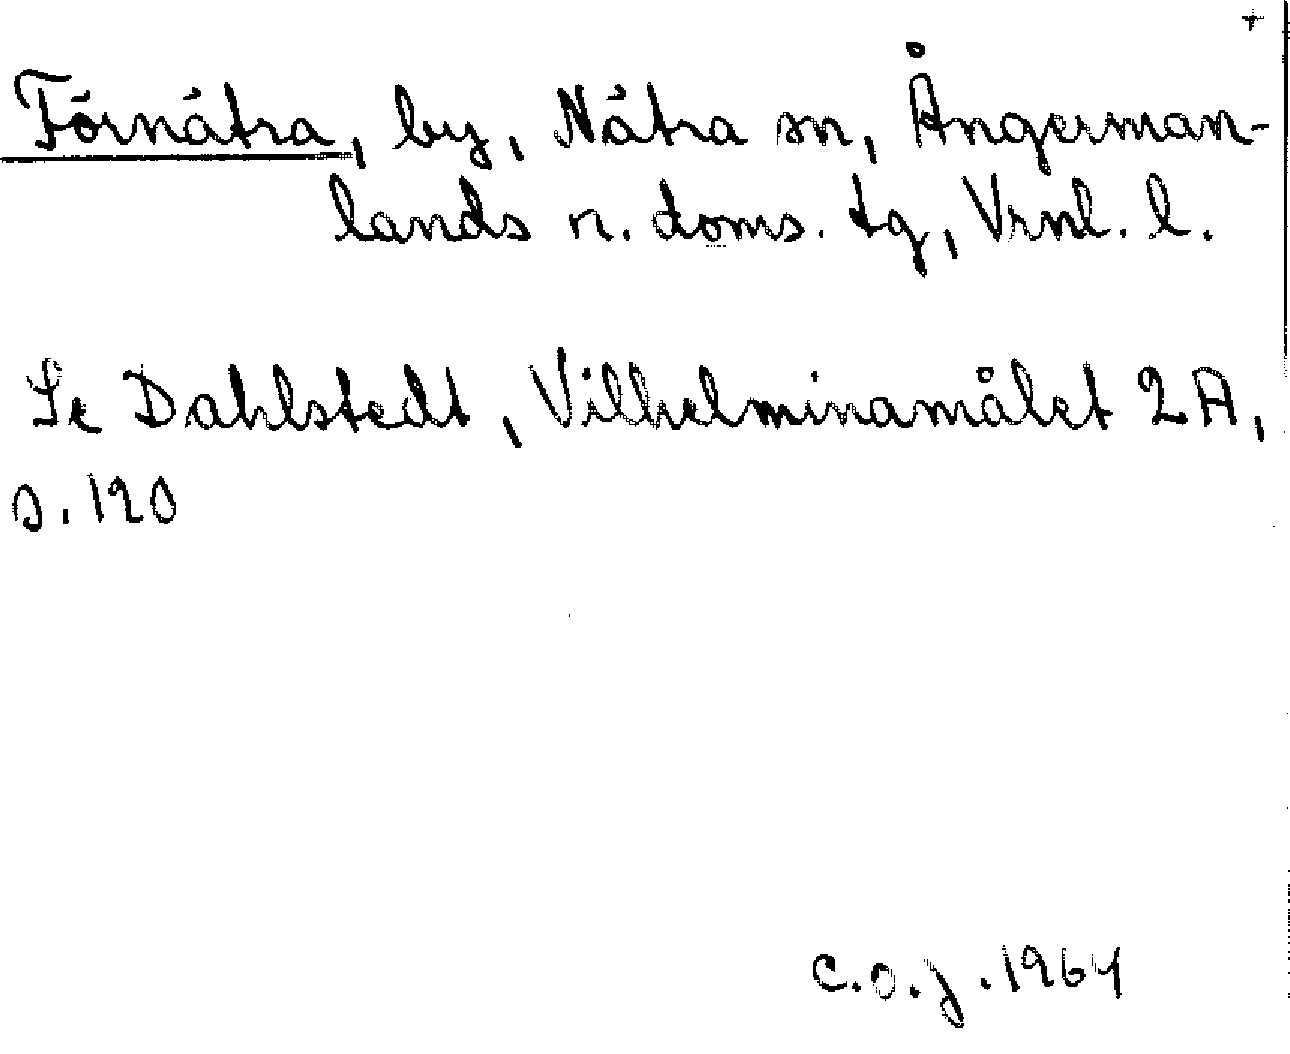 +
Förnätra, by, Nätra sn, Ångerman-
lands n. doms. tg, Vrnl. l.
Se Dahlstedt, Vilhelminamålet 2A,
s. 120
C.O.J. 1964